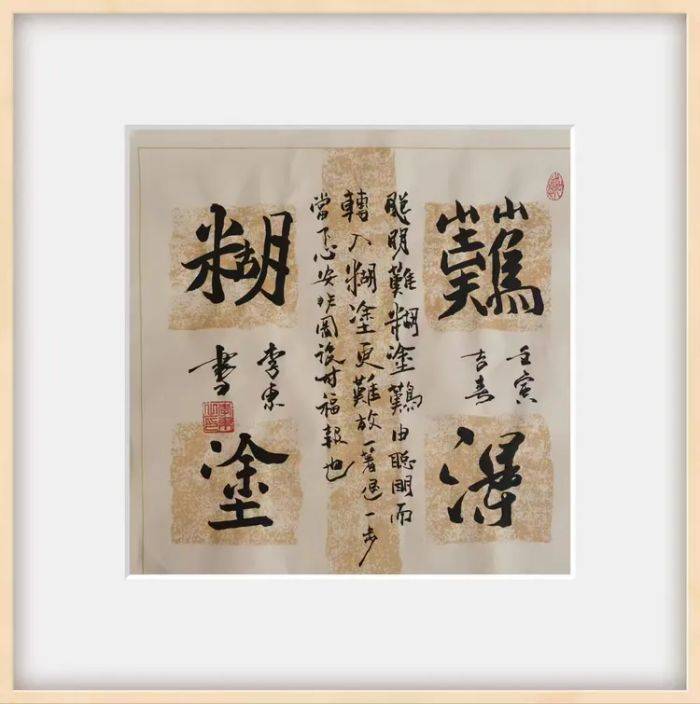 難得
壬寅
吉春
聰明難糊塗難由聰明而
轉入糊塗更難放一著退一步
當下心安非圖後時福報也
糊塗
李東
書